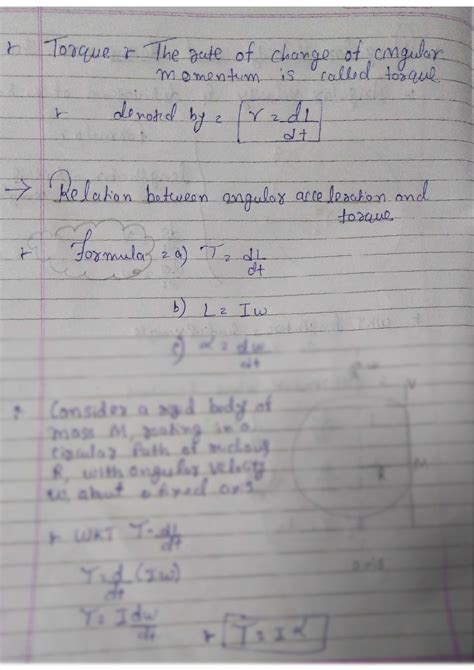 Torque → The rate of change of angular
momentum is called torque
denoted by = τ = dL/dt
→ Relation between angular acceleration and
torque
Formula = a) τ = dL/dt
b) L = Iω
c) α = dω/dt
Consider a rigid body of
mass M, rotating in a
circular Path of radious
R, with angular velocity
ω about a fixed axis
WKT τ = dL/dt
τ = d/dt (Iω)
τ = I dω/dt
τ = Iα
V
M
R
axis